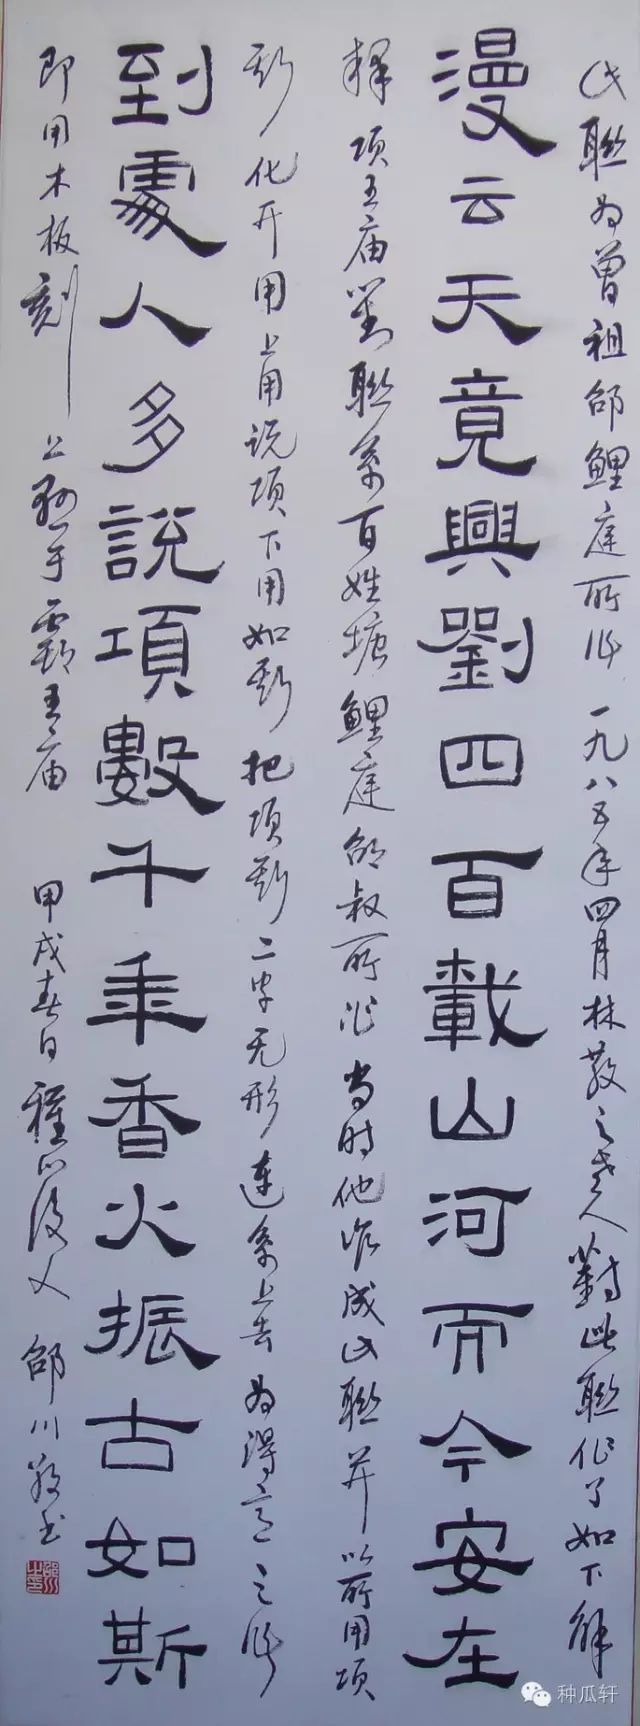 此聯为曾祖邵鲤庭所作 一九八五年四月林散之老人對此聯作了如下解
漫云天竟興劉四百載山河而今安在
释 项王庙對聯系百姓塘鲤庭邵叔所作当时他作成此聯并以所用项
斯化开用上用说项下用如斯把项斯二字无形连系上去为得意之作
到處人多說項數千年香火振古如斯
即用木板刻 上 于霸王庙 甲戌春日 種瓜後人 邵川敬书
种瓜轩